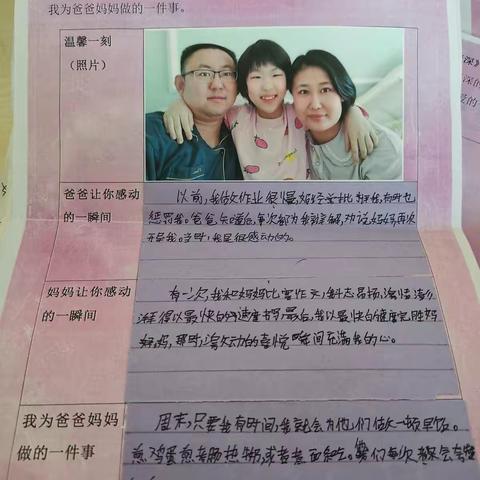 我为爸爸妈妈做的一件事。
温馨一刻
（照片）
爸爸让你感动
的一瞬间
以前，我做作业很慢，妈经常批评我，有时也
惩罚我。爸爸知道后，每次都为我辩解，劝说妈妈，再次
我。当时，我是很感动的。
妈妈让你感动
的一瞬间
有一次，我和妈妈比写作文，斗志昂扬，
得以最快的速度书写，最后，我以最快的速度完胜妈
妈妈，那时，激动的喜悦瞬间充满我的心。
我为爸爸妈妈
做的一件事
周末，只要我有时间，我就会为他们做一顿早饭。
煎鸡蛋煎亲肠热粥，或者煮面条吃。我们每次都会夸